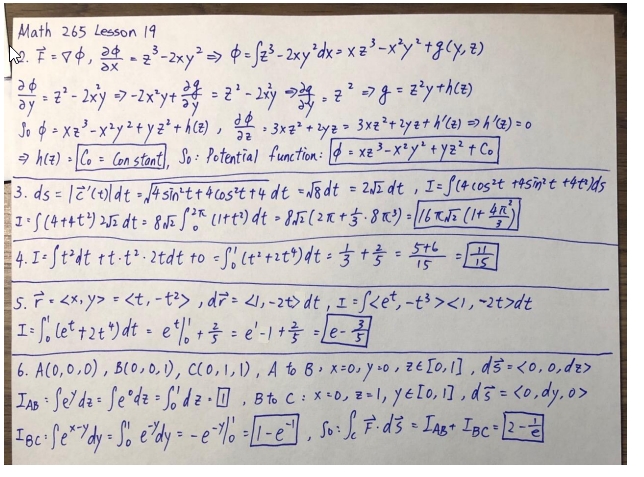 Math 265 Lesson 19
2. F⃗ = ∇ϕ, ∂ϕ/∂x = z³-2xy² ⇒ ϕ = ∫z³-2xy²dx = xz³-x²y²+g(y,z)
∂ϕ/∂y = z²-2x²y ⇒ -2x²y+∂g/∂y = z²-2x²y ⇒ ∂g/∂y = z² ⇒ g = z²y+h(z)
So ϕ = xz³-x²y²+yz²+h(z), ∂ϕ/∂z = 3xz²+2yz = 3xz²+2yz+h'(z) ⇒ h'(z)=0
⇒ h(z) = C₀ = Constant, So: Potential function: ϕ = xz³-x²y²+yz²+C₀
3. ds = |c⃗'(t)|dt = √4sin²t+4cos²t+4 dt = √8 dt = 2√2 dt, I = ∫(4cos²t+4sin²t+4t²)ds
I = ∫(4+4t²)2√2 dt = 8√2 ∫₀^2π (1+t²)dt = 8√2(2π+1/3·8π³) = 16π√2(1+4π²/3)
4. I = ∫t²dt+t·t²·2tdt+0 = ∫₀¹(t²+2t⁴)dt = 1/3+2/5 = 5+6/15 = 11/15
5. r⃗ = <x,y> = <t,-t²>, dr⃗ = <1,-2t>dt, I = ∫<eᵗ,-t³><1,-2t>dt
I = ∫₀¹(eᵗ+2t⁴)dt = eᵗ|₀¹+2/5 = e¹-1+2/5 = e-3/5
6. A(0,0,0), B(0,0,1), C(0,1,1), A to B: x=0, y=0, z∈[0,1], ds⃗ = <0,0,dz>
I_AB = ∫eʸdz = ∫e⁰dz = ∫₀¹dz = 1, B to C: x=0, z=1, y∈[0,1], ds⃗ = <0,dy,0>
I_BC = ∫eˣ⁻ʸdy = ∫₀¹e⁻ʸdy = -e⁻ʸ|₀¹ = 1-e⁻¹, So: ∫_C F⃗·ds⃗ = I_AB+I_BC = 2-1/e